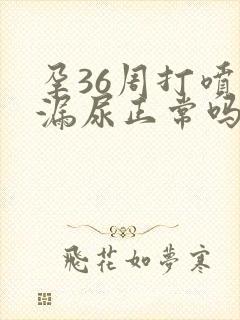 孕36周打喷
漏尿正常吗
飛花如夢寒